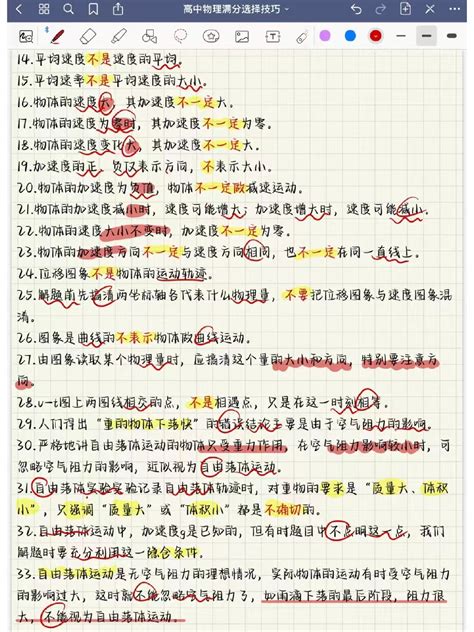 高中物理满分选择技巧
14.平均速度不是速度的平均。
15.平均速率不是平均速度的大小。
16.物体的速度大，其加速度不一定大。
17.物体的速度为零时，其加速度不一定为零。
18.物体的速度变化大，其加速度不一定大。
19.加速度的正、负仅表示方向，不表示大小。
20.物体的加速度为负值，物体不一定做减速运动。
21.物体的加速度减小时，速度可能增大；加速度增大时，速度可能减小。
22.物体的速度大小不变时，加速度不一定为零。
23.物体的加速度方向不一定与速度方向相同，也不一定在同一直线上。
24.位移图象不是物体的运动轨迹。
25.解题前先搞清两坐标轴各代表什么物理量，不要把位移图象与速度图象混
淆。
26.图象是曲线的不表示物体做曲线运动。
27.由图象读取某个物理量时，应搞清这个量的大小和方向，特别要注意方
向。
28.v-t图上两图线相交的点，不是相遇点，只是在这一时刻相等。
29.人们得出“重的物体下落快”的错误结论主要是由于空气阻力的影响。
30.严格地讲自由落体运动的物体只受重力作用，在空气阻力影响较小时，可
忽略空气阻力的影响，近似视为自由落体运动。
31.自由落体实验实验记录自由落体轨迹时，对重物的要求是“质量大、体积
小”，只强调“质量大”或“体积小”都是不确切的。
32.自由落体运动中，加速度g是已知的，但有时题目中不点明这一点，我们
解题时要充分利用这一隐含条件。
33.自由落体运动是无空气阻力的理想情况，实际物体的运动有时受空气阻力
的影响过大，这时就不能忽略空气阻力了，如雨滴下落的最后阶段，阻力很
大，不能视为自由落体运动。